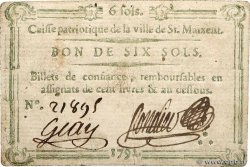 6 sols.
Caisse patriotique de la ville de St. Maixent.
BON DE SIX SOLS.
Billets de confiance, remboursables en
assignats de cent livres & au dessous.
No. 21895
1791.